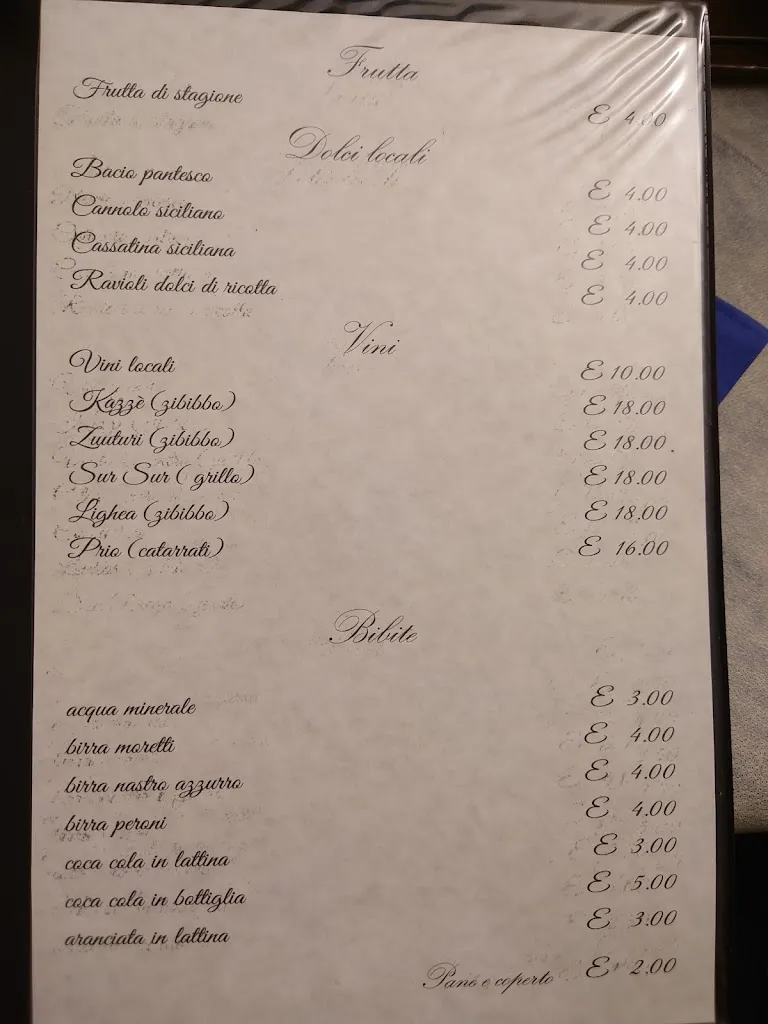 Frutta
Frutta di stagione E 4.00
Dolci locali
Bacio pantesco E 4.00
Cannolo siciliano E 4.00
Cassatina siciliana E 4.00
Ravioli dolci di ricotta E 4.00
Vini
Vini locali E 10.00
Kazzè (zibibbo) E 18.00
Zuuturi (zibibbo) E 18.00
Sur Sur ( grillo) E 18.00
Lighea (zibibbo) E 18.00
Prio (catarrati) E 16.00
Bibite
acqua minerale E 3.00
birra moretti E 4.00
birra nastro azzurro E 4.00
birra peroni E 4.00
coca cola in lattina E 3.00
coca cola in bottiglia E 5.00
aranciata in lattina E 3.00
Pane e coperto E 2.00